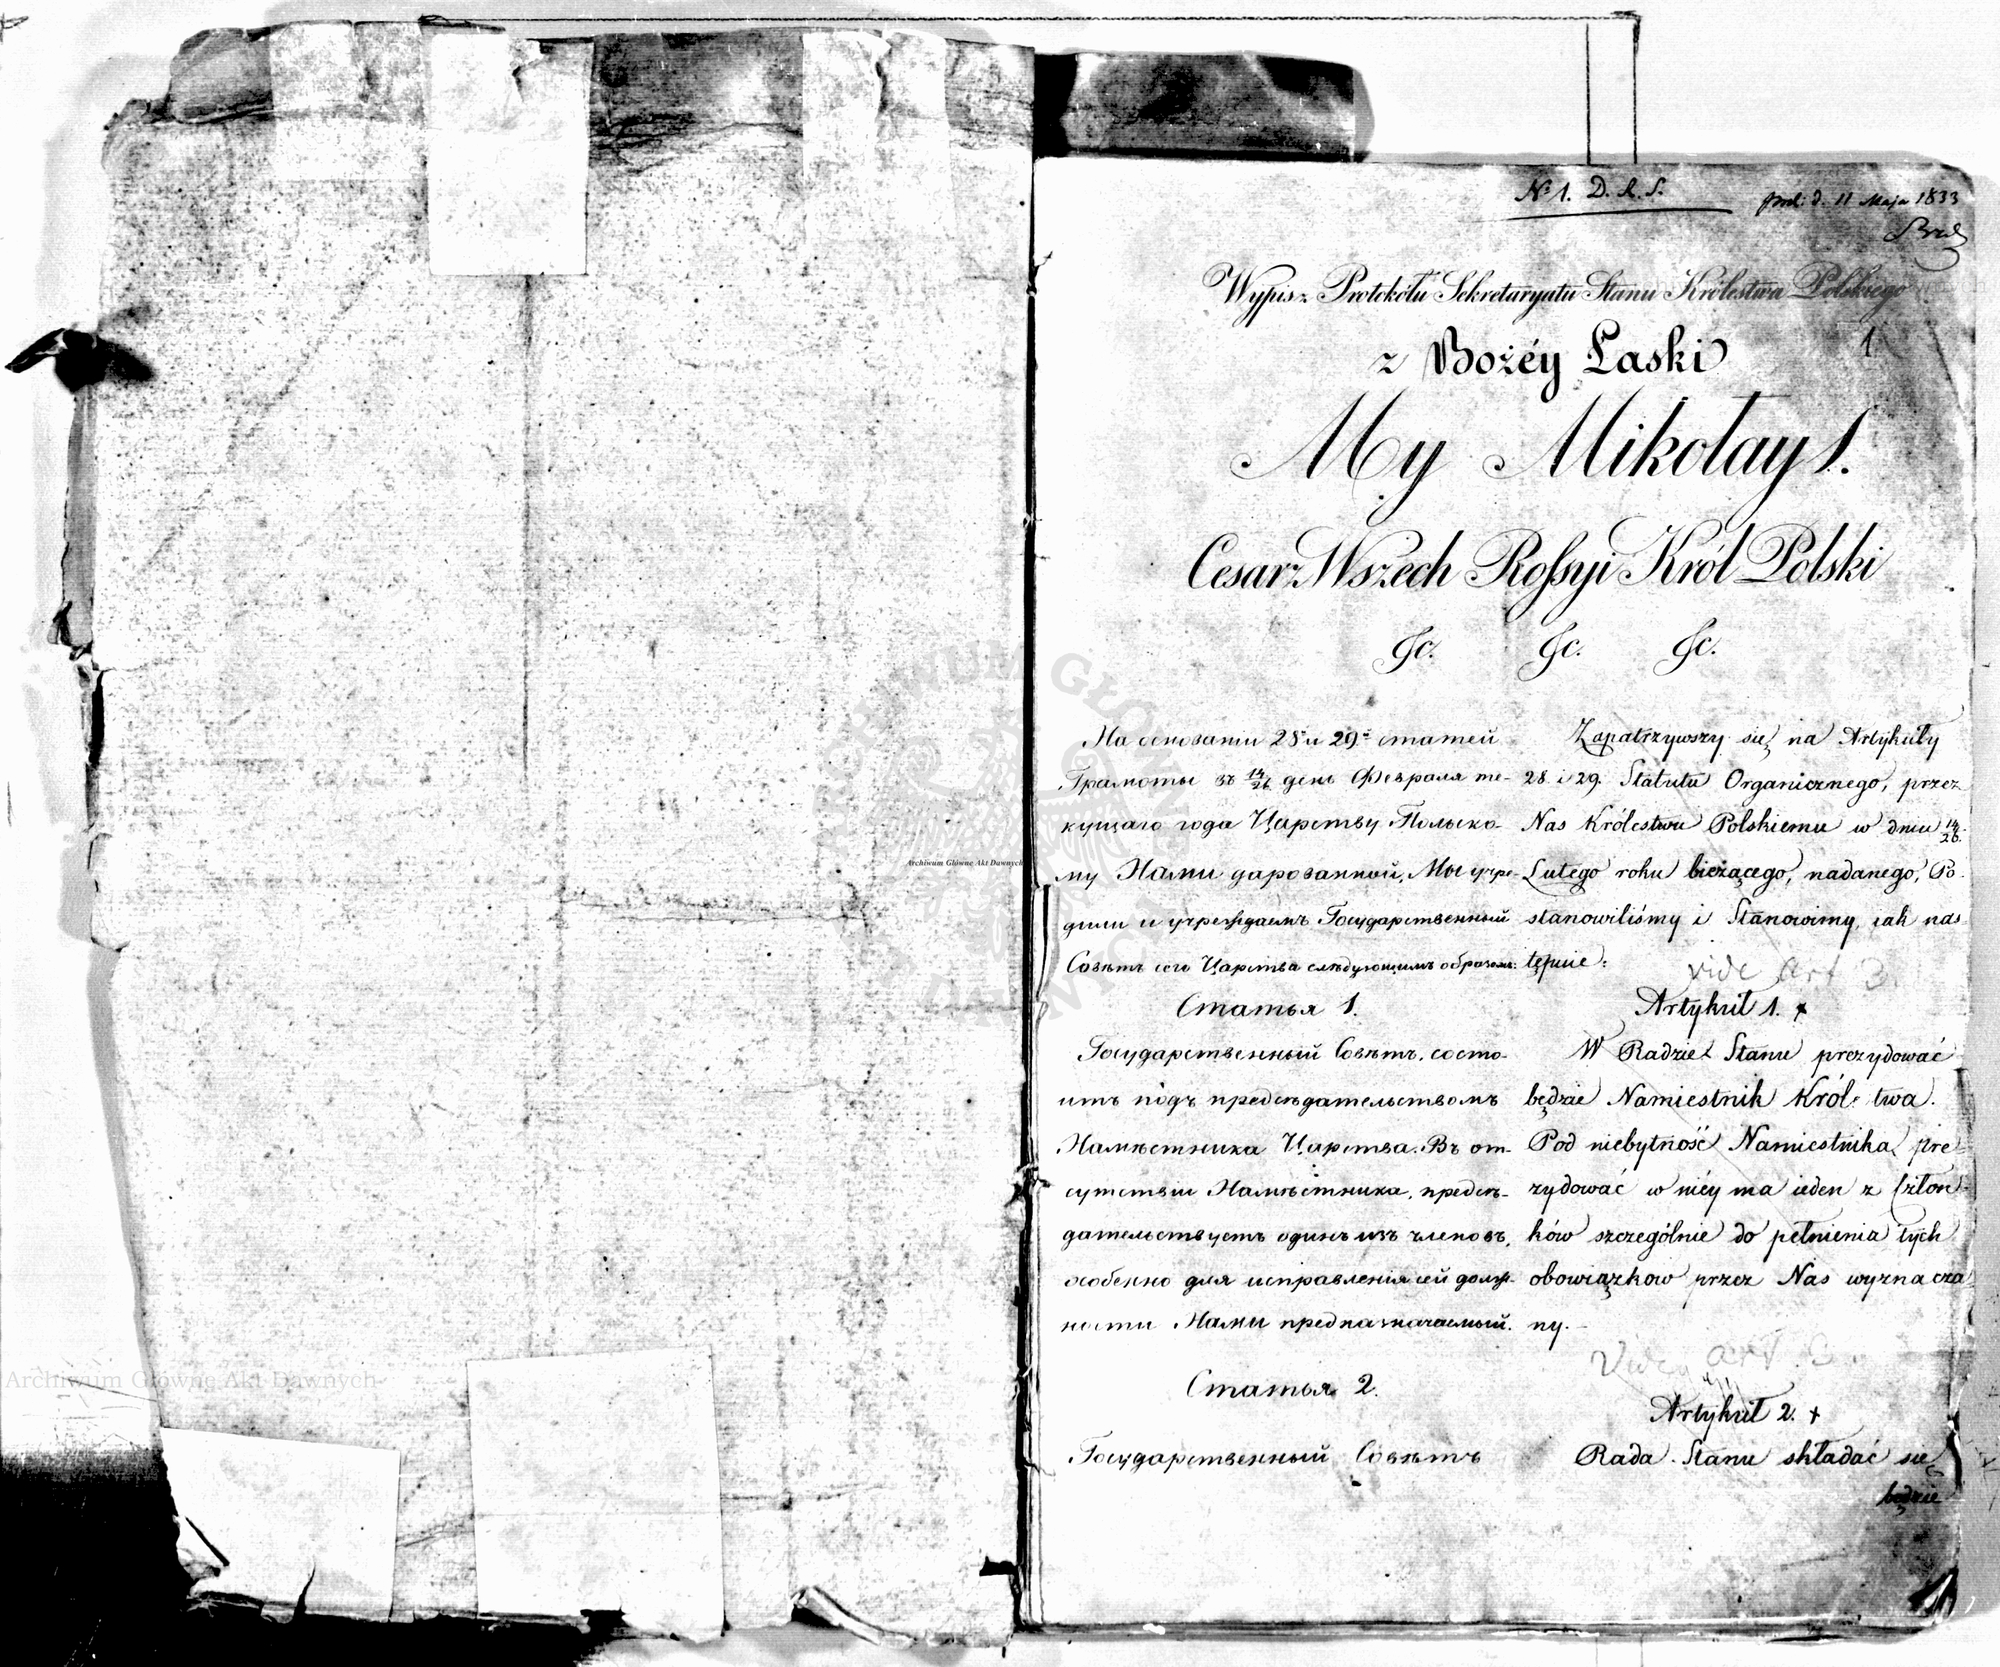 № 1. D. R. S.
d. 11 Maja 1833
Wypis z Protokółu Sekretaryatu Stanu Królestwa Polskiego
1
z Bożéy Łaski
My Mikołay I.
Cesarz Wszech Rossyi Król Polski
&c. &c. &c.
На основаніи 28й и 29й статей
Грамоты въ 14/26 день Февраля те-
кущаго года Царству Польско-
му Нами дарованной, Мы учре-
дили и учреждаемъ Государственный
Совѣтъ сего Царства слѣдующимъ образомъ:
Статья 1.
Государственный Совѣтъ, состо-
итъ подъ предсѣдательствомъ
Намѣстника Царства. Въ от-
сутствіи Намѣстника, предсѣ-
дательствуетъ одинъ изъ членовъ,
особенно для исправленія сей долж-
ности Нами предназначаемый.
Статья 2.
Государственный Совѣтъ
Zapatrzywszy się na Artykuły
28. i 29. Statutu Organicznego, przez
Nas Królestwu Polskiemu w dniu 14/26.
Lutego roku bieżącego, nadanego, Po-
stanowiliśmy i Stanowimy, iak nas-
tępuie:
vide art 3.
Artykuł 1. +
W Radzie Stanu prezydować
będzie Namiestnik Królestwa.
Pod niebytność Namiestnika, pre-
zydować w niéy ma ieden z Człon-
ków szczególnie do pełnienia tych
obowiązkow przez Nas wyznacza
ny. -
Vide art. 3.
Artykuł 2. +
Rada Stanu składać się
będzie
Archiwum Główne Akt Dawnych
Archiwum Główne Akt Dawnych